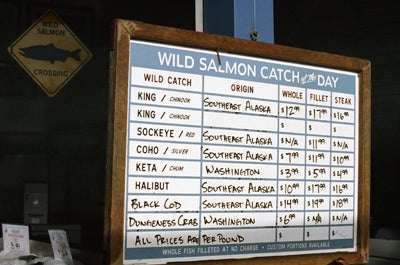 WILD SALMON
CROSSING
WILD SALMON CATCH of the DAY
WILD CATCH ORIGIN WHOLE FILLET STEAK
KING / CHINOOK SOUTHEAST ALASKA $12.99 $17.99 $16.99
KING / CHINOOK $ $ $
SOCKEYE / RED SOUTHEAST ALASKA $N/A $11.99 $N/A
COHO / SILVER SOUTHEAST ALASKA $7.99 $11.99 $10.99
KETA / CHUM WASHINGTON $3.99 $5.99 $4.99
HALIBUT SOUTHEAST ALASKA $10.99 $17.99 $16.99
BLACK COD SOUTHEAST ALASKA $14.99 $19.99 $18.99
DUNGENESS CRAB WASHINGTON $6.99 $N/A $N/A
ALL PRICES ARE PER POUND
WHOLE FISH FILLETED AT NO CHARGE • CUSTOM PORTIONS AVAILABLE